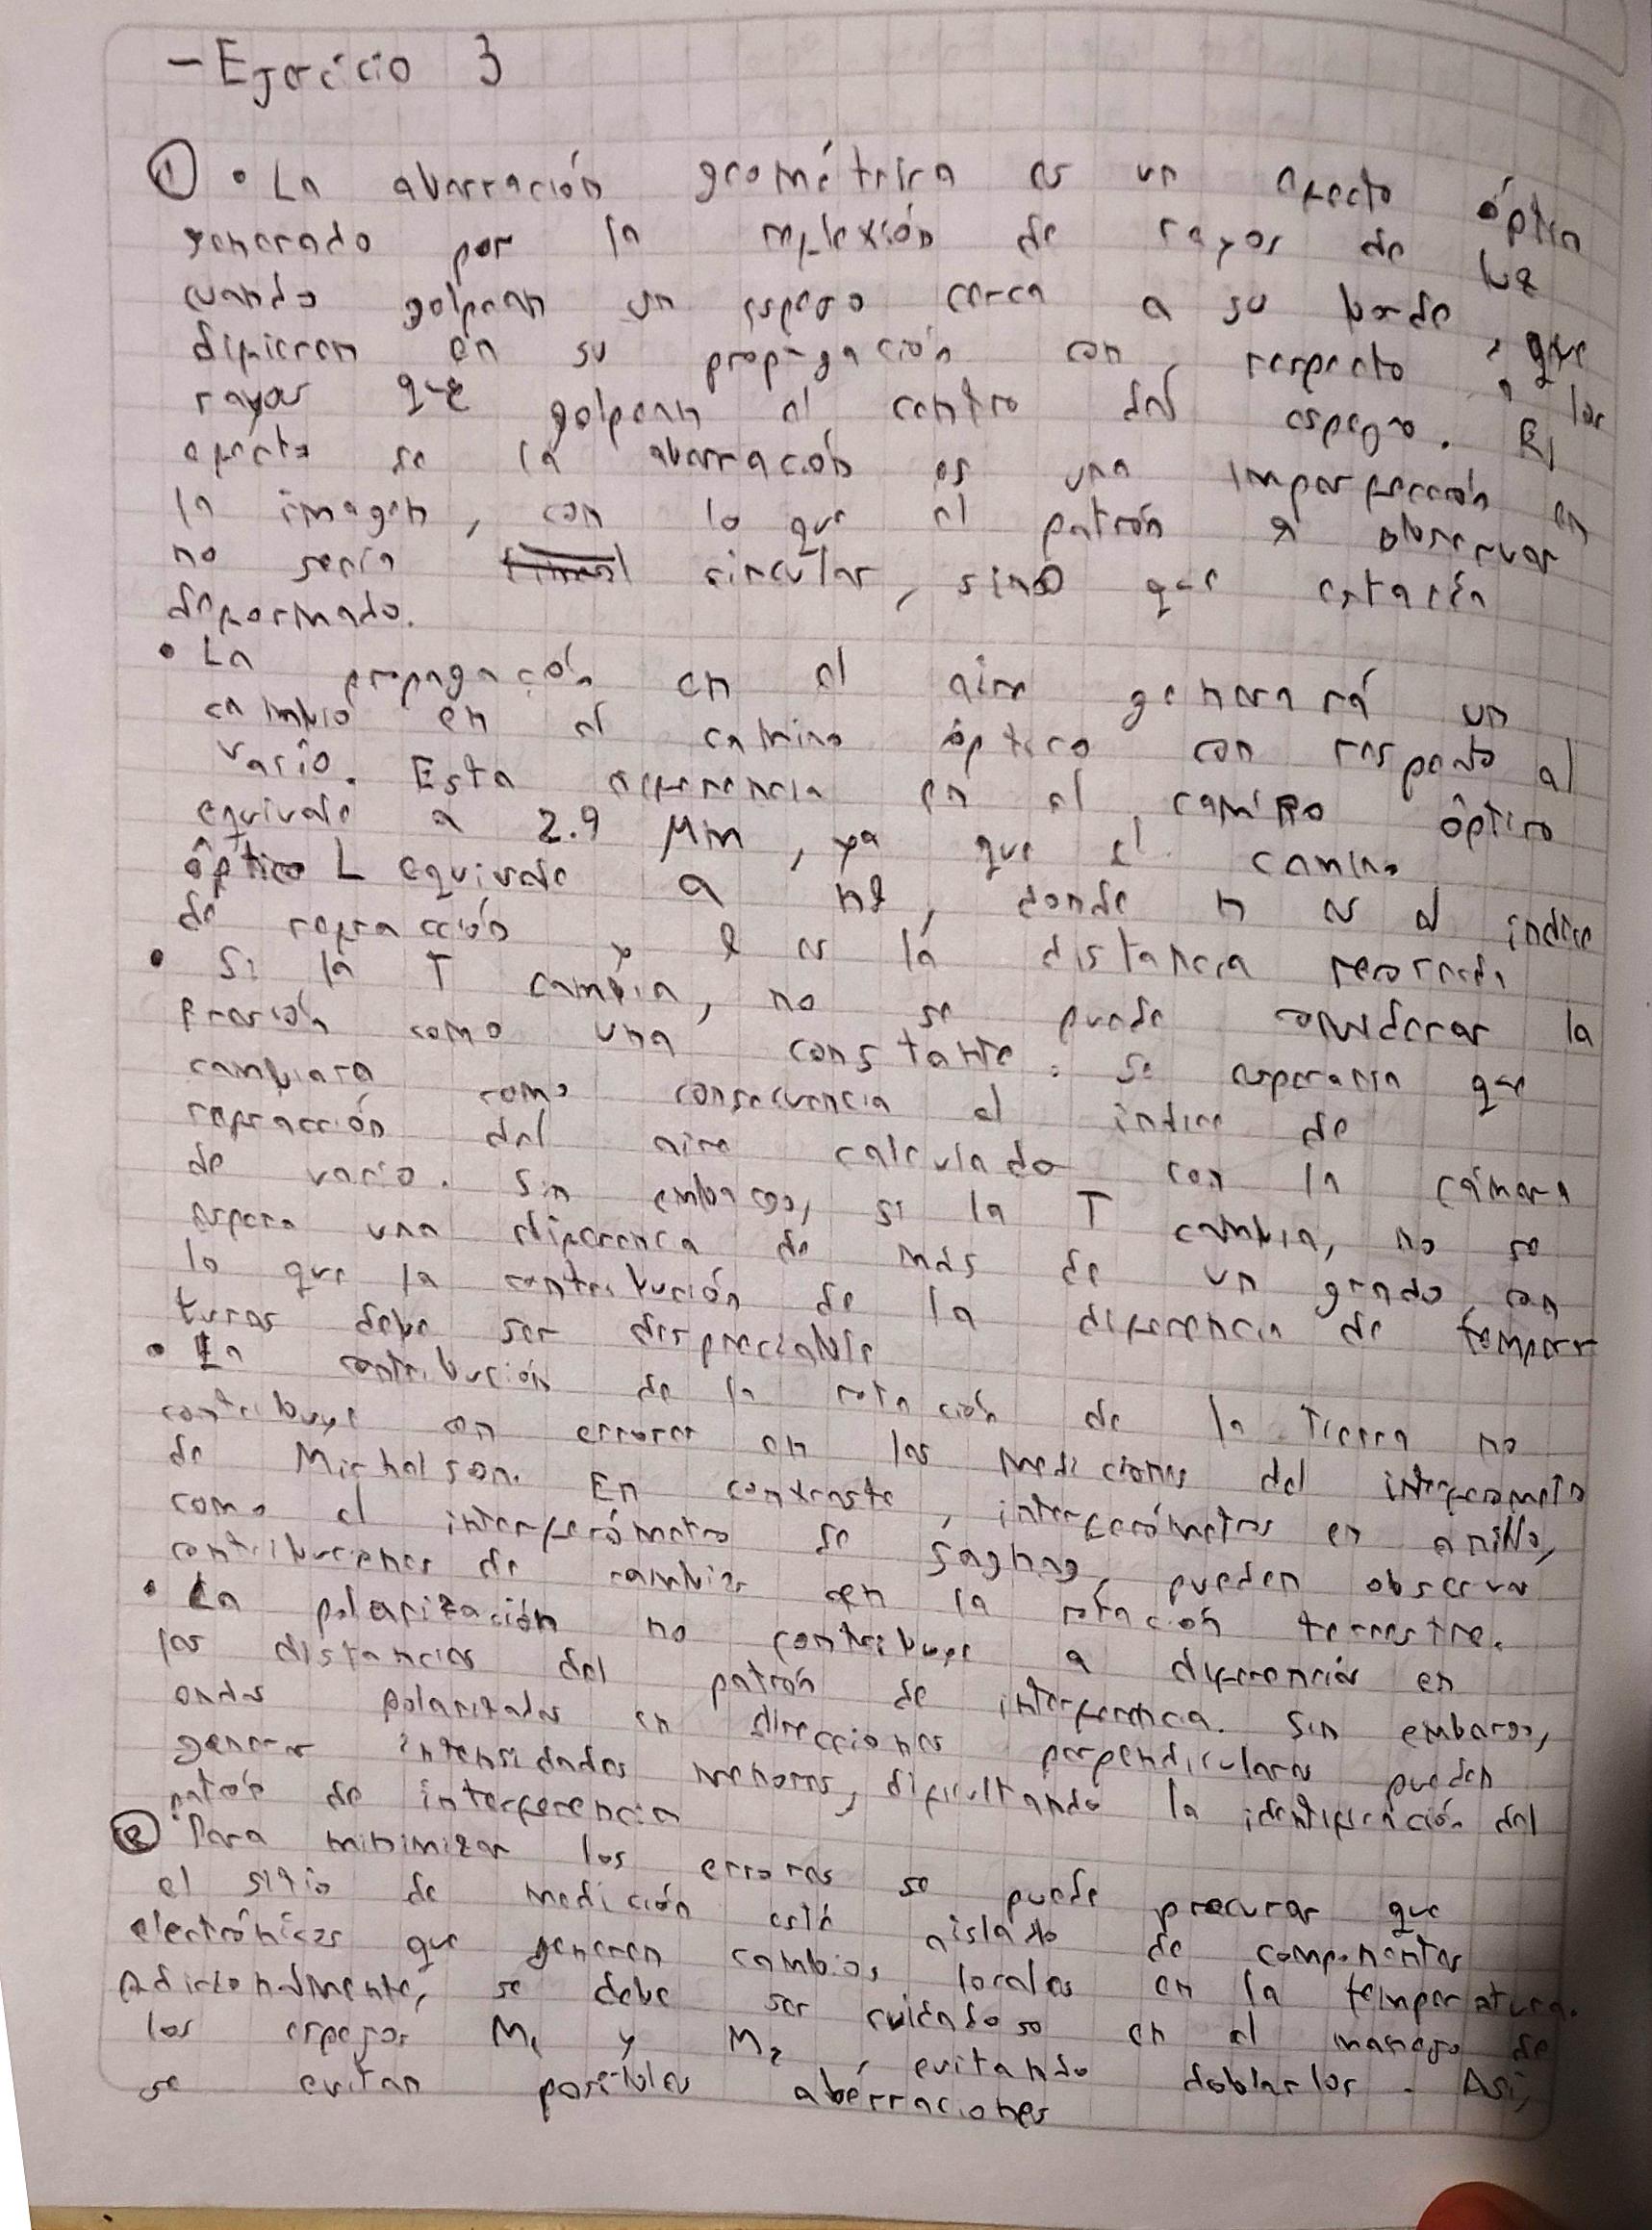 - Ejercicio 3
① • La aberración geométrica es un efecto óptico
generado por la reflexión de rayos de luz
cuando golpean un espejo cerca a su borde, que
difieren en su propagación con respecto a los
rayos que golpean el centro del espejo. El
efecto de la aberración es una imperfección en
la imagen, con lo que el patrón a observar
no sería circular, sino que estaría
deformado.
• La propagación en el aire generará un
cambio en el camino óptico con respecto al
vacío. Esta diferencia en el camino óptico
equivale a 2.9 μm, ya que el camino
óptico L equivale a nl, donde n es el índice
de refracción y l es la distancia recorrida
• Si la T cambia, no se puede considerar la
presión como una constante. Se esperaría que
cambiara como consecuencia el índice de
refracción del aire calculado con la cámara
de vacío. Sin embargo, si la T cambia, no se
espera una diferencia de más de un grado, con
lo que la contribución de la diferencia de temper
turas debe ser despreciable
• La contribución de la rotación de la Tierra no
contribuye con errores en las mediciones del interferómetro
de Michelson. En contraste, interferómetros en anillo,
como el interferómetro de Sagnag, pueden observar
contribuciones de cambios en la rotación terrestre.
• La polarización no contribuye a diferencias en
las distancias del patrón de interferencia. Sin embargo,
ondas polarizadas en direcciones perpendiculares pueden
generar intensidades menores, dificultando la identificación del
patrón de interferencia
② • Para minimizar los errores se puede procurar que
el sitio de medición esté aislado de componentes
electrónicas que generen cambios locales en la temperatura.
Adicionalmente, se debe ser cuidadoso en el manejo de
los espejos M₁ y M₂, evitando doblarlos. Así,
se evitan posibles aberraciones